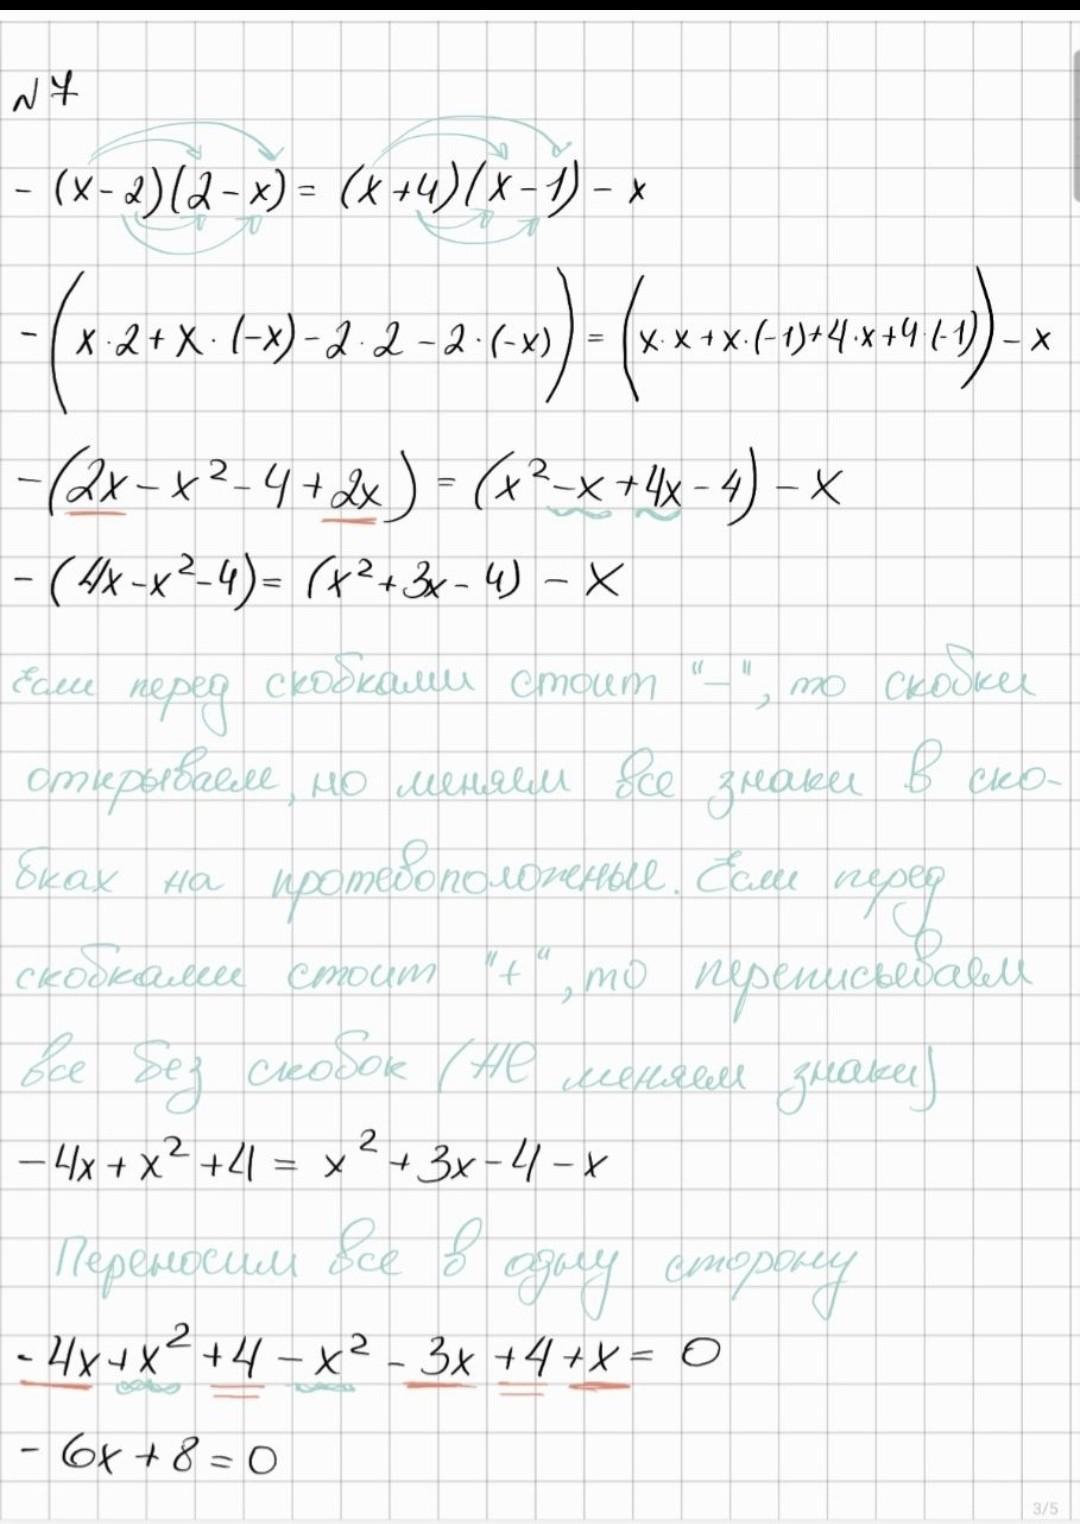 N7
- (x - 2)(2 - x) = (x + 4)(x - 1) - x
- (x · 2 + x · (-x) - 2 · 2 - 2 · (-x)) = (x · x + x · (-1) + 4 · x + 4 · (-1)) - x
- (2x - x² - 4 + 2x) = (x² - x + 4x - 4) - x
- (4x - x² - 4) = (x² + 3x - 4) - x
Если перед скобками стоит "-", то скобки
открываем, но меняем все знаки в ско-
бках на протевоположеные. Если перед
скобками стоит "+", то переписываем
все без скобок (НЕ меняем знаки)
- 4x + x² + 4 = x² + 3x - 4 - x
Переносим все в одну сторону
- 4x + x² + 4 - x² - 3x + 4 + x = 0
- 6x + 8 = 0
3/5